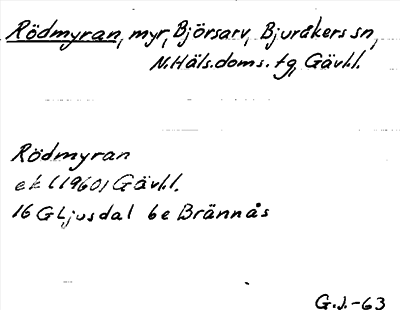 Rödmyran, myr, Björsarv, Bjuråkers sn,
N.Häls.doms.tg, Gävl.l.
Rödmyran
ek (1960) Gävl.l.
16 G Ljusdal 6e Brännås
G.J.-63